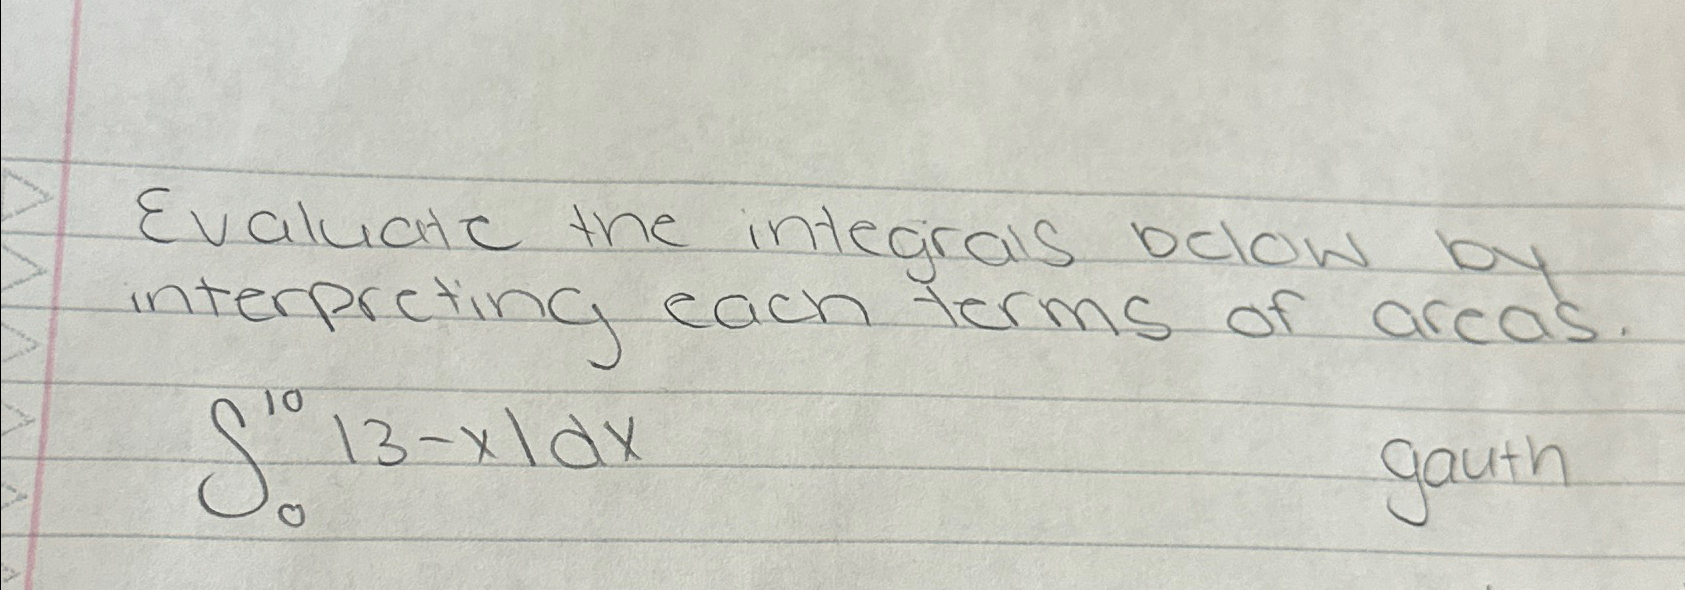 Evaluate the integrals below by
interpreting each terms of areas.
∫₀¹⁰ |3-x|dx
gauth